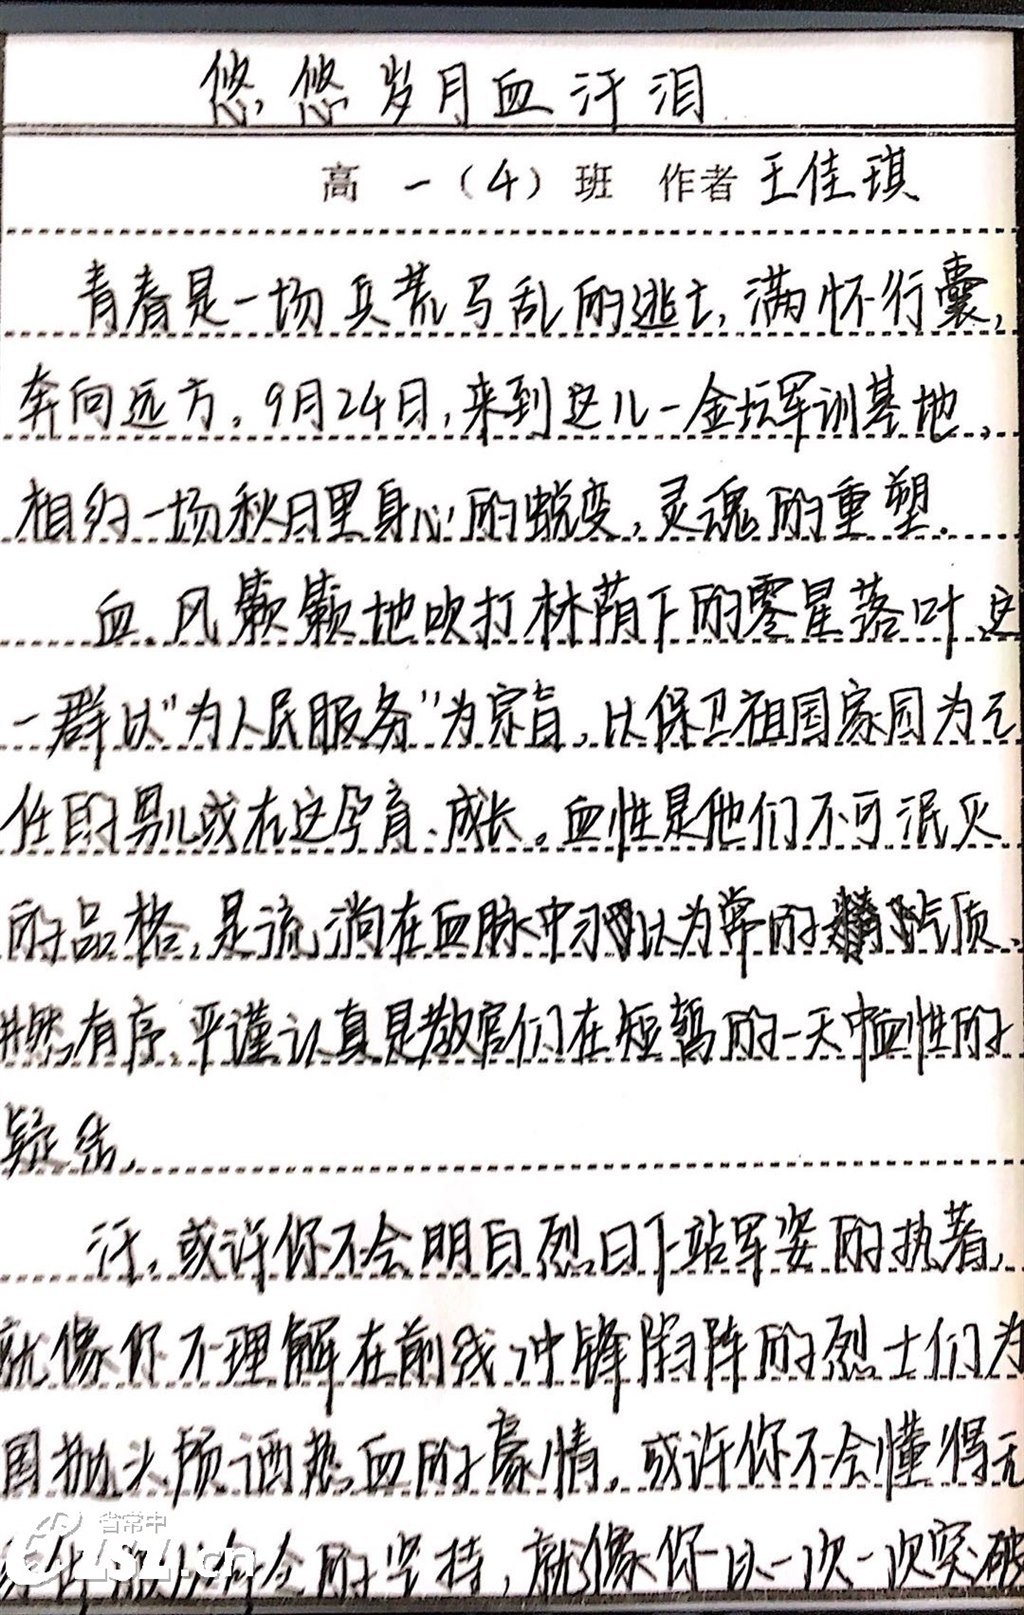 悠悠岁月血汗泪
高一(4)班 作者王佳琪
青春是一场兵荒马乱的逃亡,满怀行囊,
奔向远方。9月24日,来到这儿一金坛军训基地,
相约一场秋日里身心的蜕变,灵魂的重塑。
血。风簌簌地吹打林荫下的零星落叶,这
一群以"为人民服务"为宗旨,以保卫祖国家园为己
任的男儿或在这孕育、成长。血性是他们不可泯灭
的品格,是流淌在血脉中习以为常的气质,
井然有序,严谨认真是教官们在短暂的一天中血性的
凝结。
汗。或许你不会明白烈日下站军姿的执着,
就像你不理解在前线冲锋陷阵的烈士们为
国抛头颅洒热血的豪情。或许你不会懂得无
的坚持,就像你以一次一次突破
省常中
CZSZ.cn